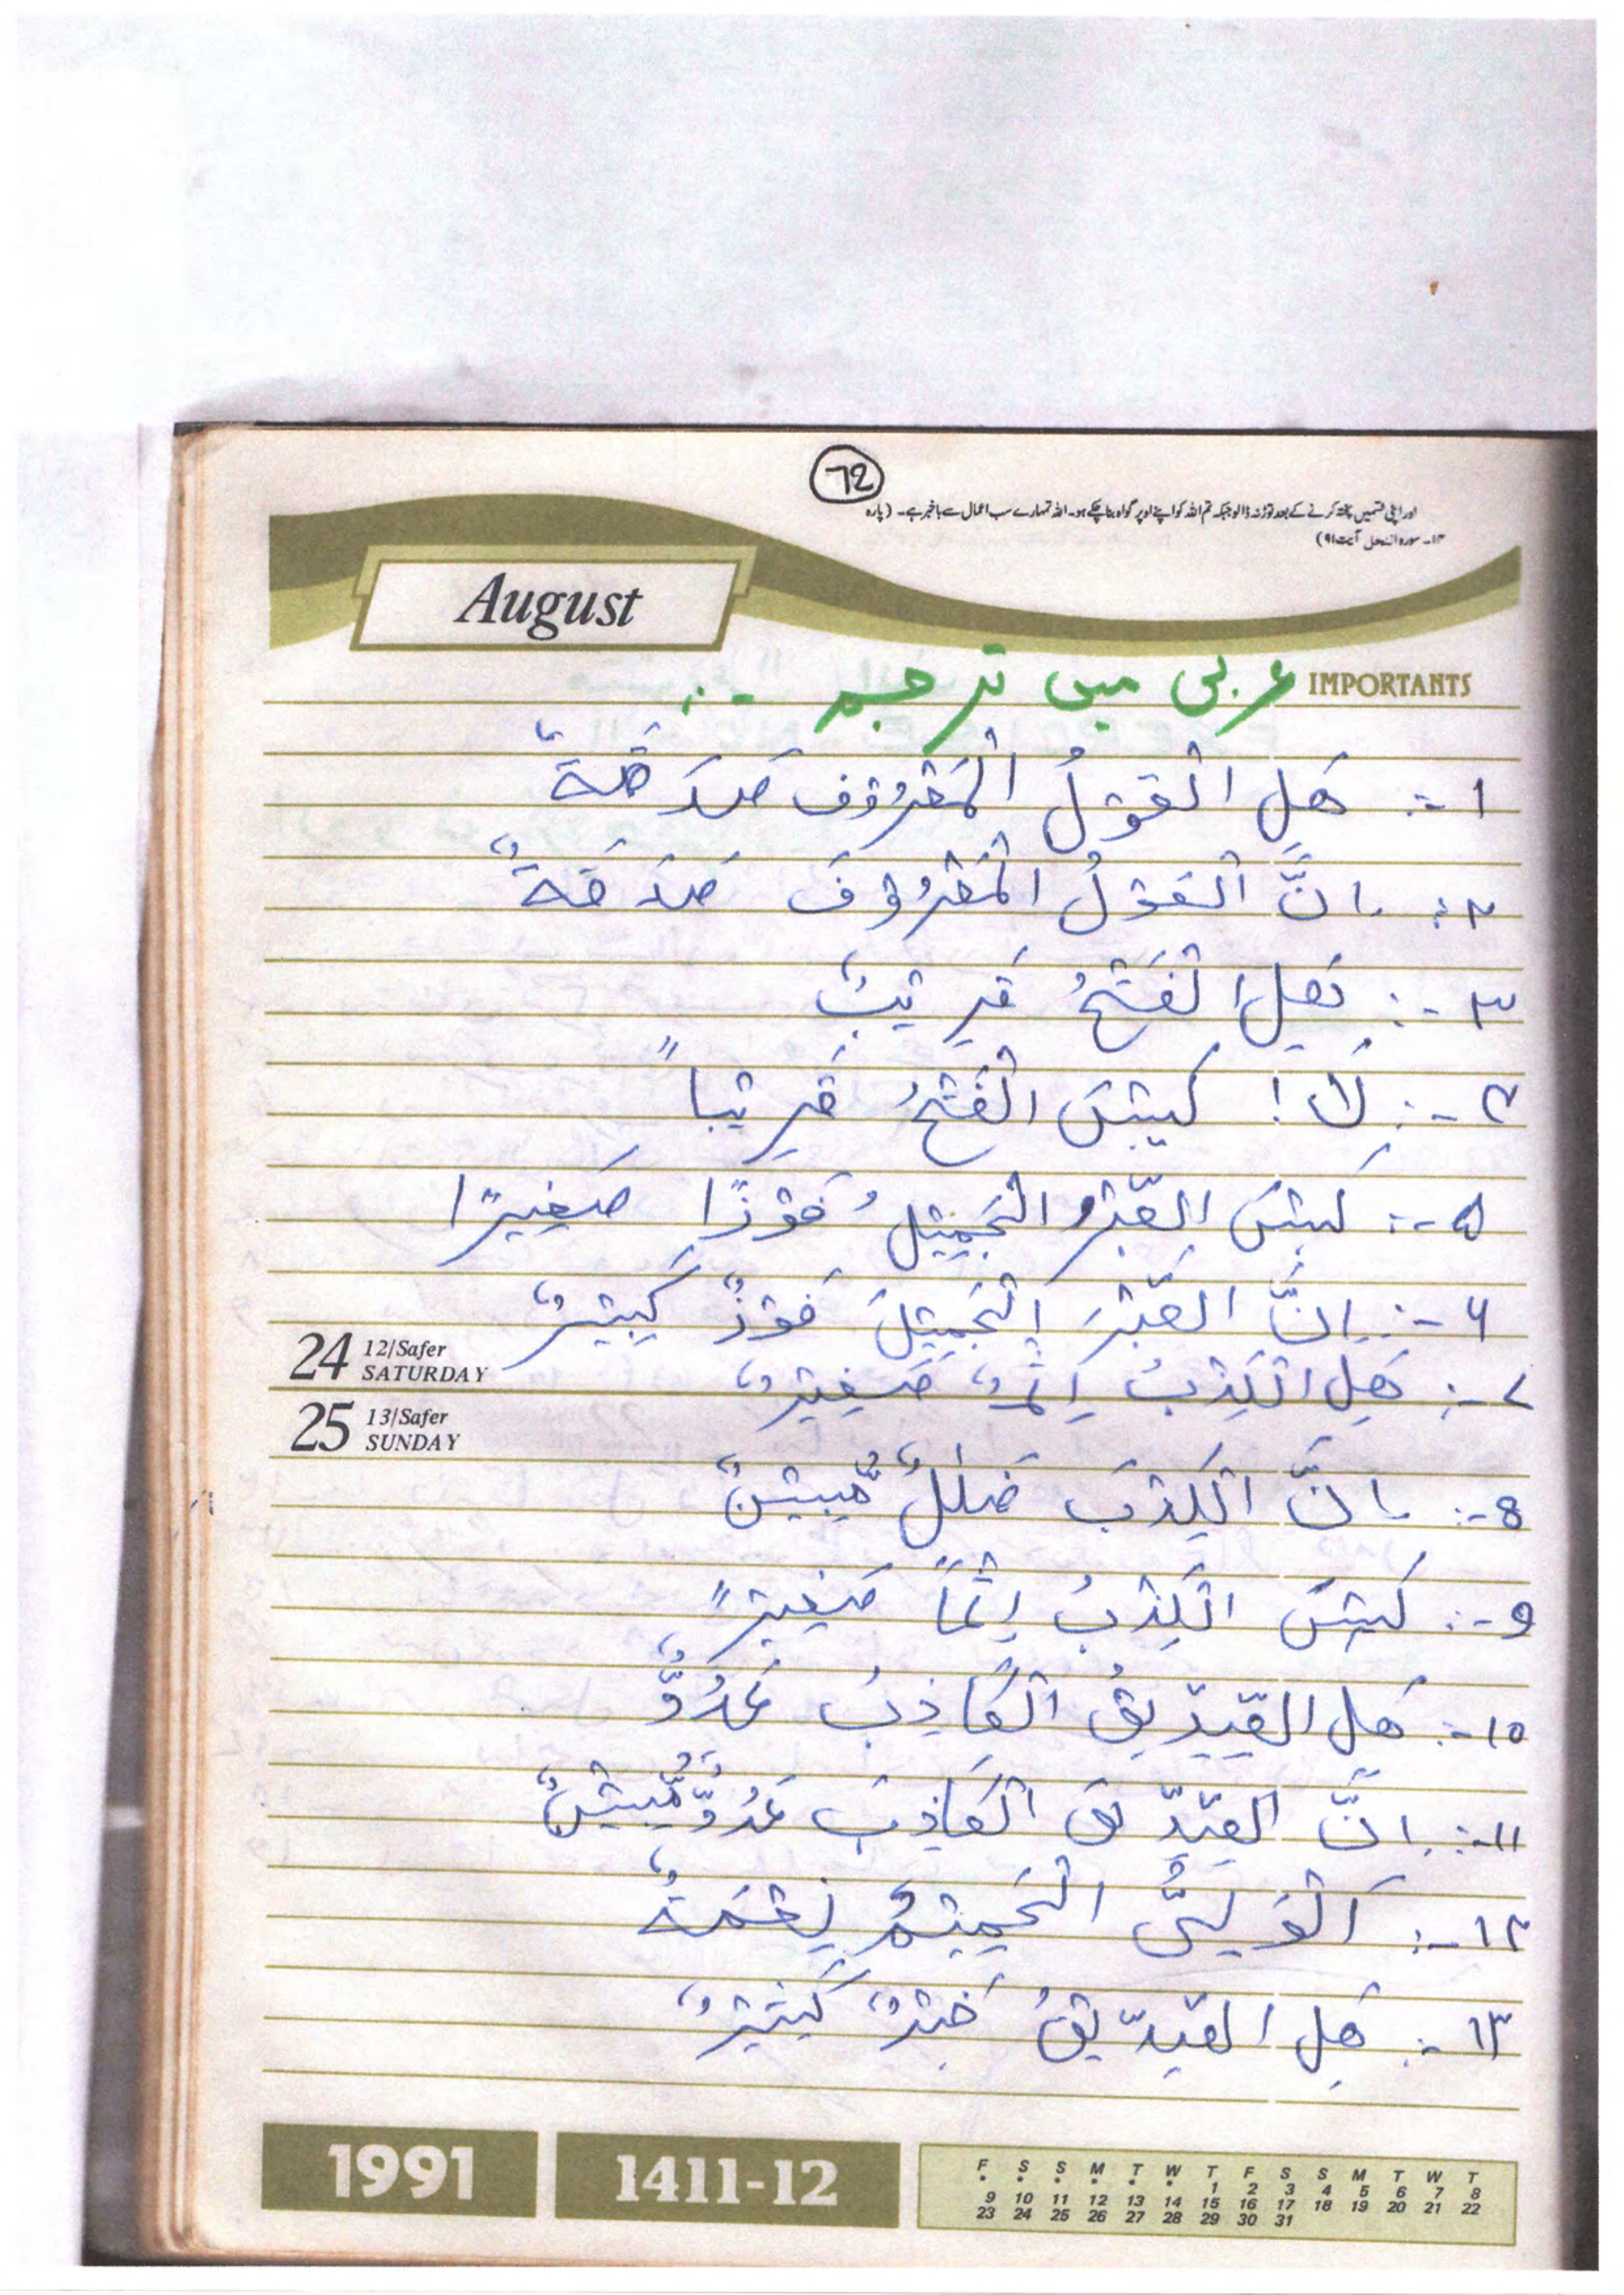 72
اور اپنی قسمیں پختہ کرنے کے بعد توڑ نہ ڈالو جبکہ تم اللہ کو اپنے اوپر گواہ بنا چکے ہو۔ اللہ تمہارے سب اعمال سے باخبر ہے۔ (پارہ
۱۴۔ سورہ النحل آیت ۹۱)
August
IMPORTANTS
عربی میں ترجمہ :-
۱ -: هَلِ الْقَوْلُ الْمَعْرُوْف صَدَقَةٌ
۲ : اِنَّ الْقَوْلُ الْمَعْرُوْفَ صَدَقَةٌ
۳ -: هَلِ الْفَتْحُ قَرِيْبٌ
۴ -: لَا ! لَيْسَ الْفَتْحُ قَرِيْباً
۵ -: لَيْسَ الصَّبْرُ الْجَمِيْلُ فَوْزًا صَغِيْرًا
۶ -: اِنَّ الصَّبْرَ الْجَمِيْلَ فَوْزٌ كَبِيْرٌ
24 12/Safer
SATURDAY
۷ -: هَلِ الْكِذْبُ اِثْمٌ صَغِيْرٌ
25 13/Safer
SUNDAY
8 -: اِنَّ الْكِذْبَ ضَلٰلٌ مُّبِيْنٌ
9 -: لَيْسَ الْكِذْبُ اِثْمًا صَغِيْرً
۱۰ -: هَلِ الصِّدِّيْقُ الْكَاذِبُ عَدُوٌّ
۱۱ -: اِنَّ الصِّدِّيْقَ الْكَاذِبَ عَدُوٌّ مُّبِيْنٌ
۱۲ -: اَلْوَلِىُّ الْحَمِيْمُ نِعْمَةٌ
۱۳ -: هَلِ الصِّدِّيْقُ خَيْرٌ كَثِيْرٌ
1991
1411-12
F S S M T W T F S S M T W T
• • • • • • 1 2 3 4 5 6 7 8
9 10 11 12 13 14 15 16 17 18 19 20 21 22
23 24 25 26 27 28 29 30 31